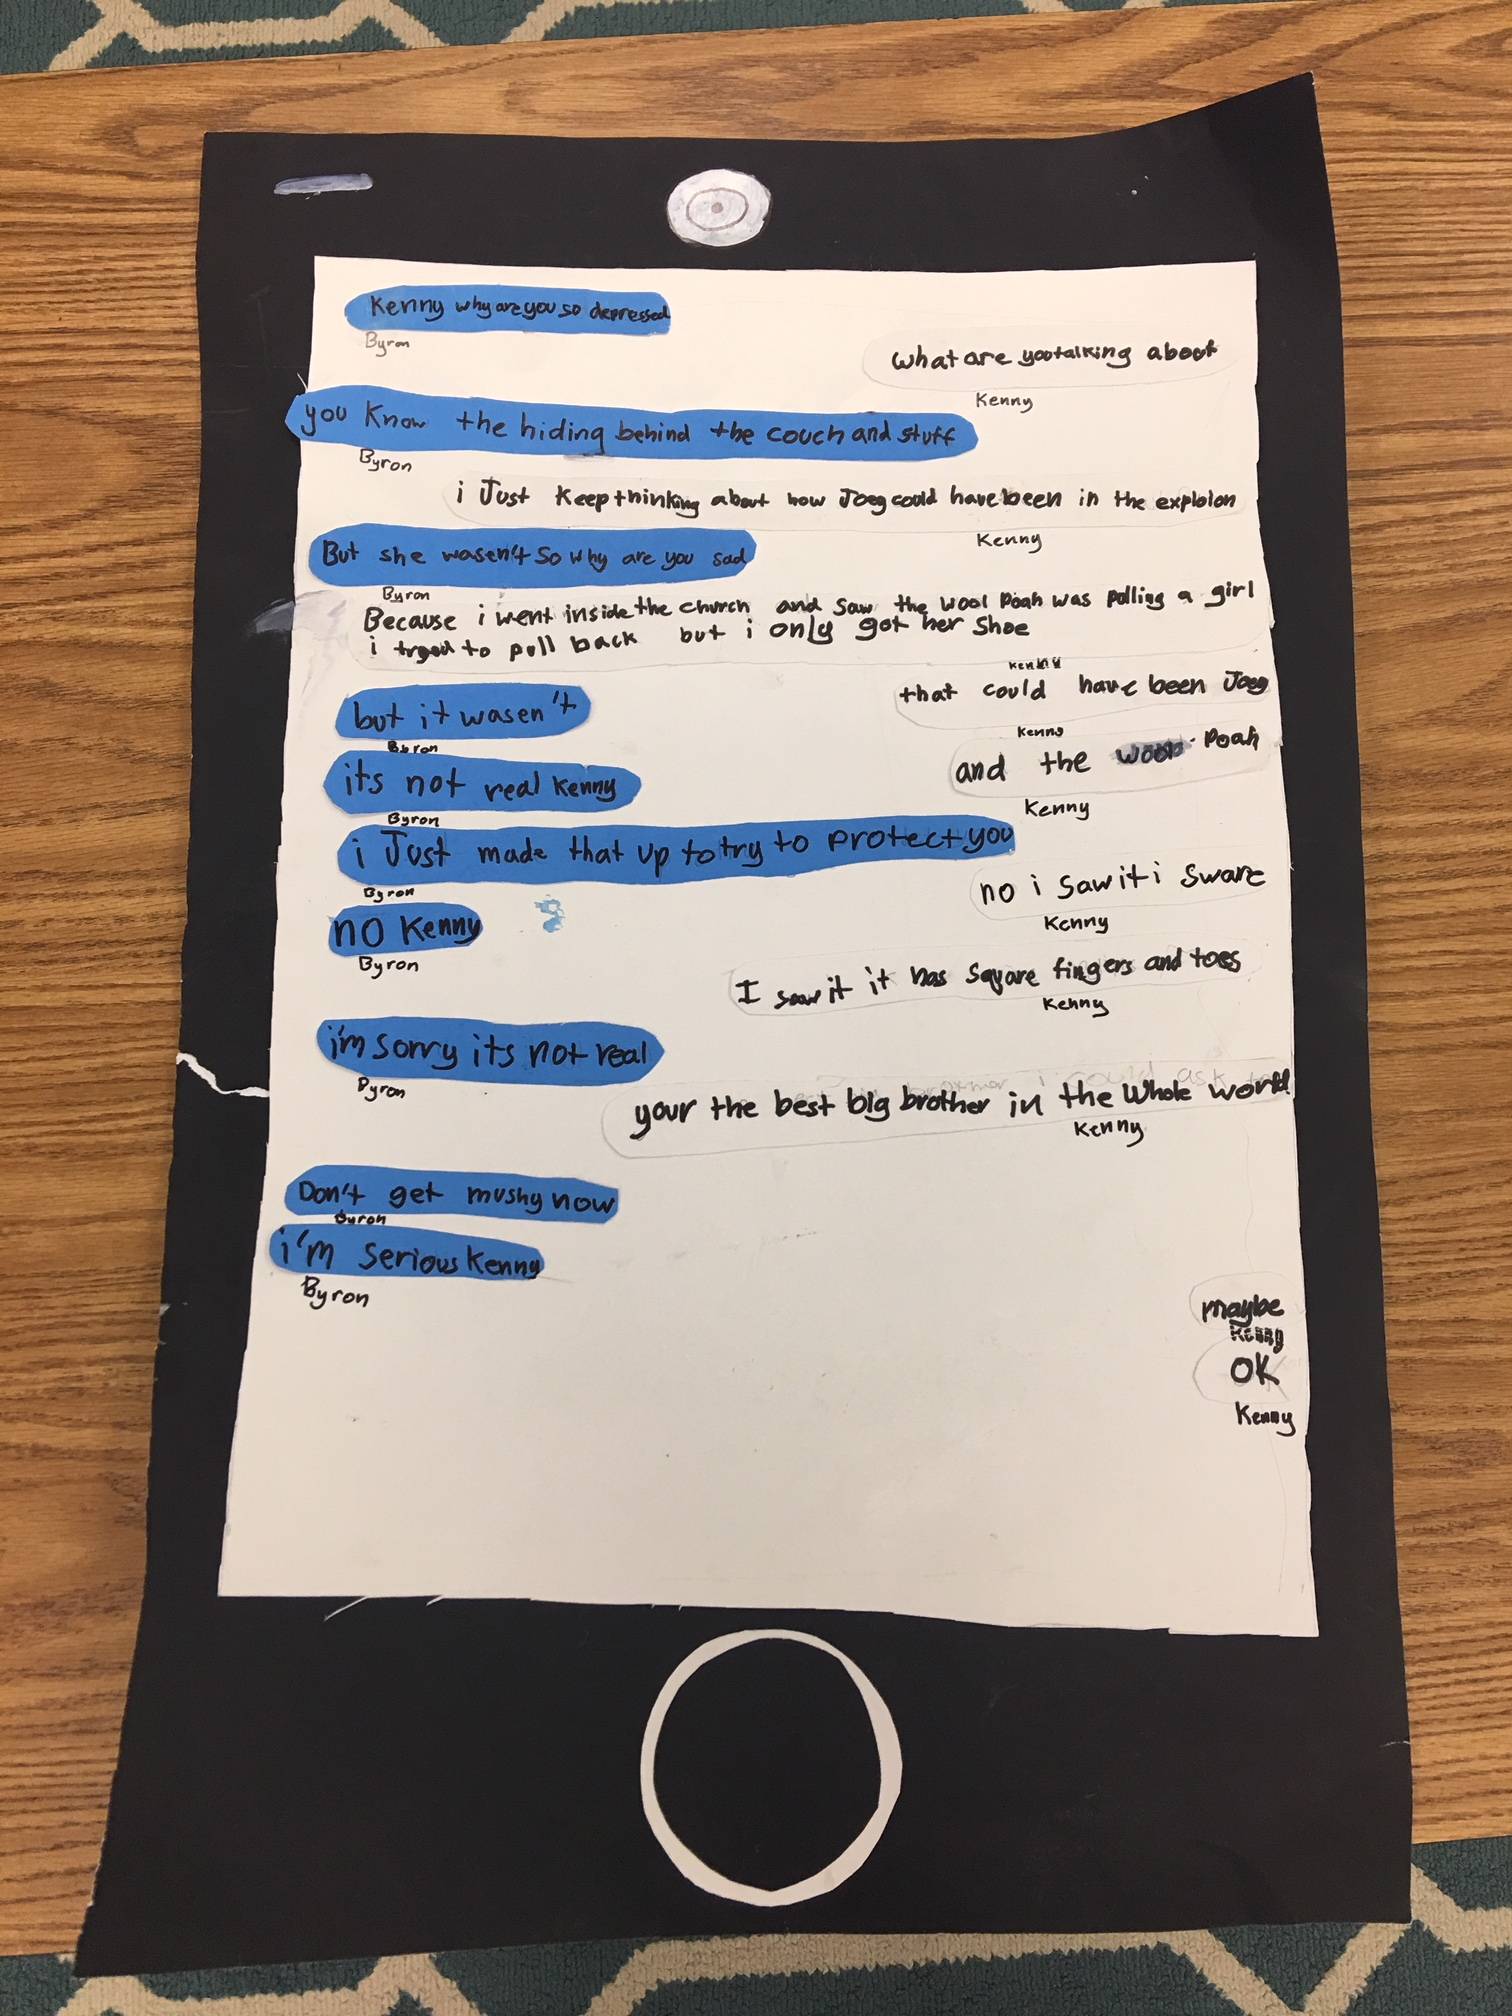 Kenny why are you so depressed
Byron
what are you talking about
Kenny
you know the hiding behind the couch and stuff
Byron
i Just keep thinking about how Joey could have been in the exploion
Kenny
But she wasen't so why are you sad
Byron
Because i went inside the church and saw the wool poah was polling a girl
i tryed to pull back but i only got her shoe
Kenny
that could have been Joey
Kenny
but it wasen't
Byron
and the wool poah
Kenny
its not real Kenny
Byron
i Just made that up to try to protect you
Byron
no i saw it i sware
Kenny
no Kenny
Byron
I saw it it has square fingers and toes
Kenny
i'm sorry its not real
Byron
your the best big brother in the whole world
Kenny
Don't get mushy now
Byron
i'm serious Kenny
Byron
maybe
Kenny
OK
Kenny